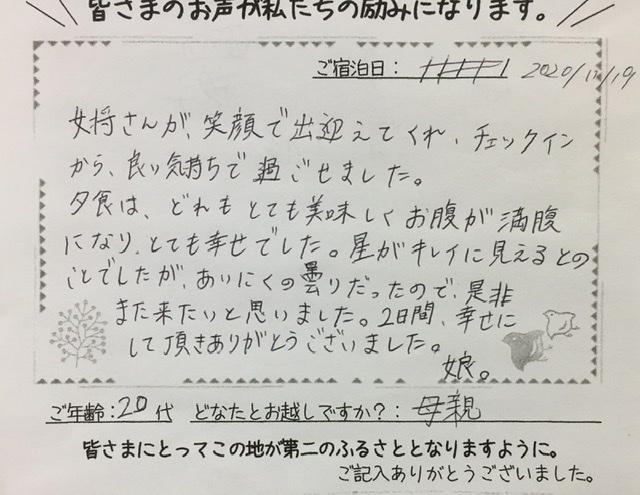 皆さまのお声が私たちの励みになります。
ご宿泊日： 2020/11/19
女将さんが、笑顔で出迎えてくれ、チェックイン
から、良い気持ちで過ごせました。
夕食は、どれもとても美味しくお腹が満腹
になり、とても幸せでした。星がキレイに見えるとの
ことでしたが、あいにくの曇りだったので、是非
また来たいと思いました。2日間、幸せに
して頂きありがとうございました。
娘。
ご年齢：20代 どなたとお越しですか？：母親
皆さまにとってこの地が第二のふるさととなりますように。
ご記入ありがとうございました。